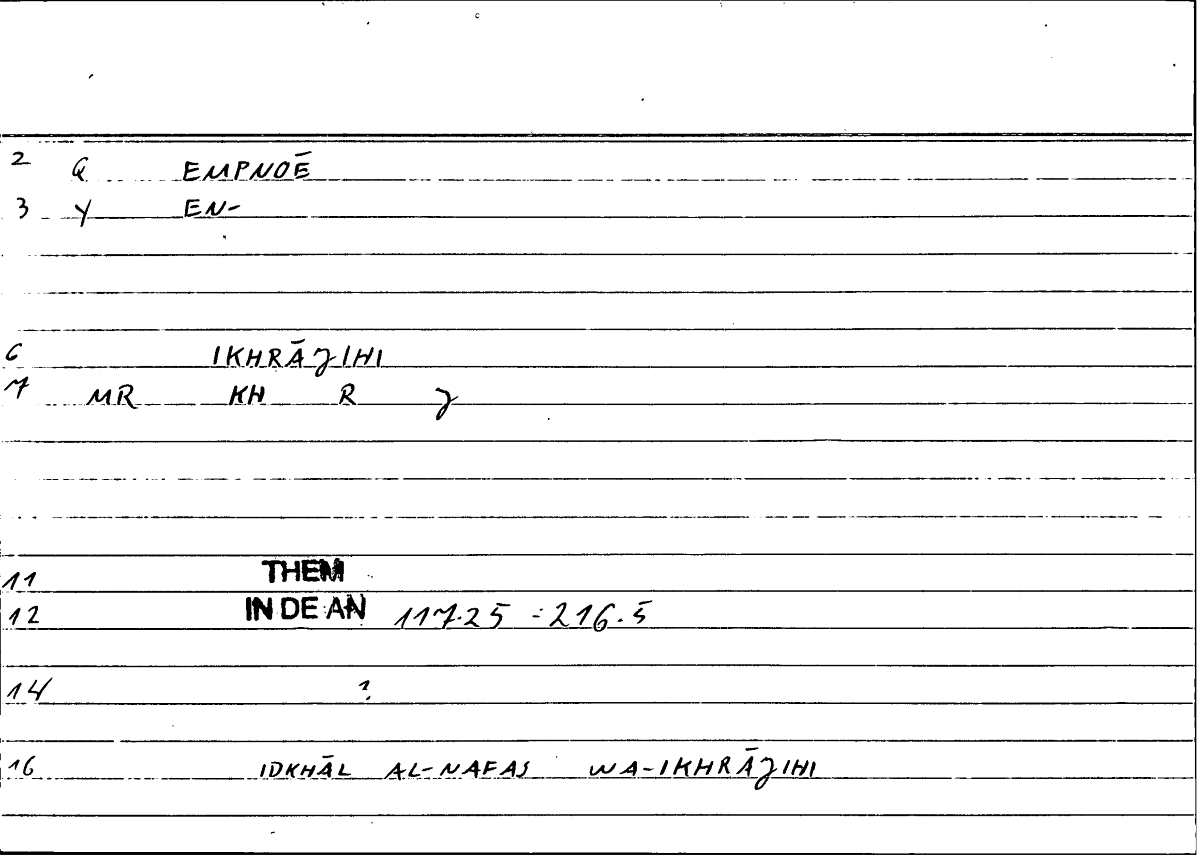 2 Q EMPNOĒ
3 Y EN-
6 IKHRĀJIHI
7 MR KH R J
11 THEM
12 IN DE AN 117.25 = 216.5
14 ?
16 IDKHĀL AL-NAFAS WA-IKHRĀJIHI